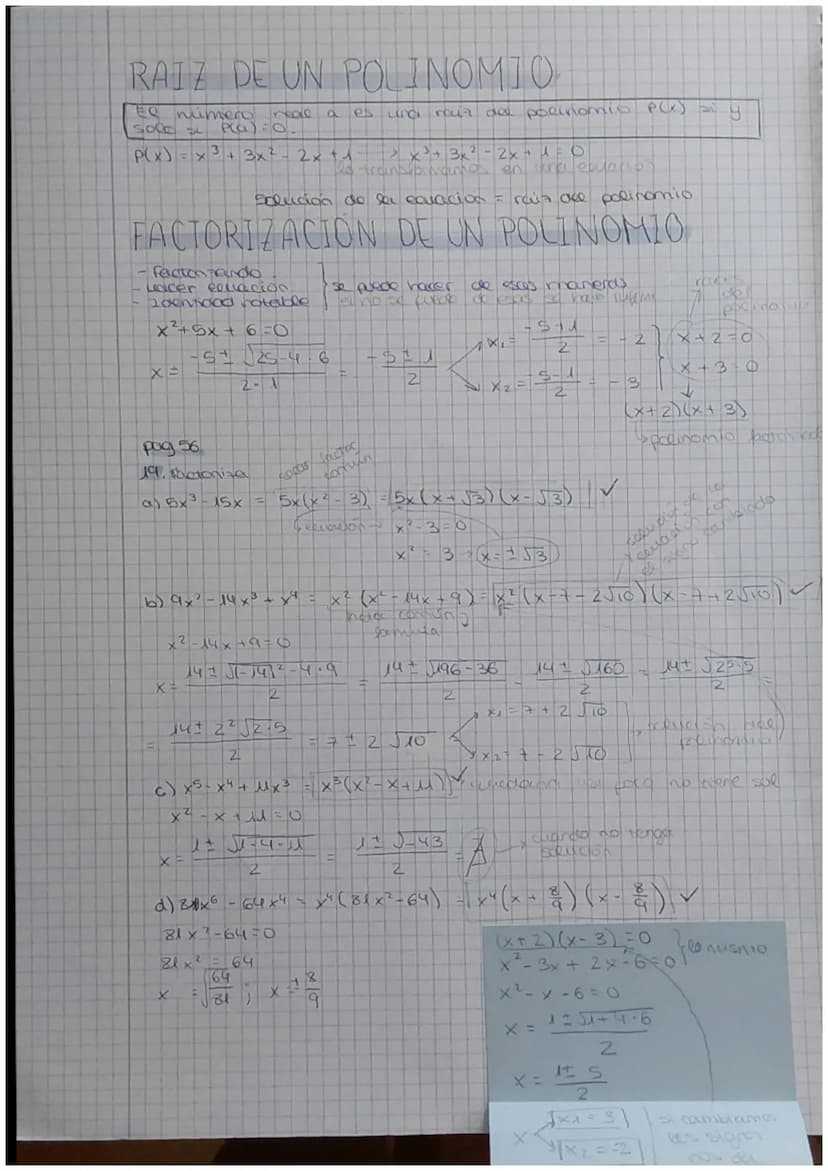 RAIZ DE UN POLINOMIO
El número real a es una raiz del polinomio P(x) si y
solo si P(a)=0.
P(x) = x³ + 3x² - 2x + 1 → x³ + 3x² - 2x + 1 = 0
lo transformamos en una ecuación
Solución de la ecuación = raiz del polinomio
FACTORIZACIÓN DE UN POLINOMIO
- Factorizando
- Hacer ecuación
- Identidad notable
se puede hacer de esas maneras
si no se puede de esas se hace
x² + 5x + 6 = 0
x = (-5 ± √(25 - 4·6)) / (2·1) = (-5 ± 1) / 2
x₁ = (-5 + 1) / 2 = -2
x₂ = (-5 - 1) / 2 = -3
x + 2 = 0
x + 3 = 0
(x+2)(x+3)
polinomio
pag 56
19. Factoriza
factor común
a) 5x³ - 15x = 5x(x² - 3) = 5x(x + √3)(x - √3) ✓
ecuación → x² - 3 = 0
x² = 3 → x = ±√3
solución de la
ecuación con
el signo cambiado
b) 9x² - 14x³ + x⁴ = x²(x² - 14x + 9) = x²(x - 7 - 2√10)(x - 7 + 2√10) ✓
factor común
formula
x² - 14x + 9 = 0
x = (14 ± √((-14)² - 4·9)) / 2 = (14 ± √(196 - 36)) / 2 = (14 ± √160) / 2 = (14 ± √(2⁵·5)) / 2 =
= (14 ± 2²√(2·5)) / 2 = 7 ± 2√10
x₁ = 7 + 2√10
x₂ = 7 - 2√10
solución del
polinomio
c) x⁵ - x⁴ + 11x³ = x³(x² - x + 11) ✓ no tiene sol
x² - x + 11 = 0
x = (1 ± √(1 - 4·11)) / 2 = (1 ± √-43) / 2 = ∄
cuando no tenga
solución
d) 81x⁶ - 64x⁴ = x⁴(81x² - 64) = x⁴(x + 8/9)(x - 8/9) ✓
81x² - 64 = 0
81x² = 64
x = √(64/81) ; x = ± 8/9
(x+2)(x-3) = 0
x² - 3x + 2x - 6 = 0
lo mismo
x² - x - 6 = 0
x = (1 ± √(1 + 4·6)) / 2
x = (1 ± 5) / 2
x
x₁ = 3
x₂ = -2
si cambiamos
los signos
nos da